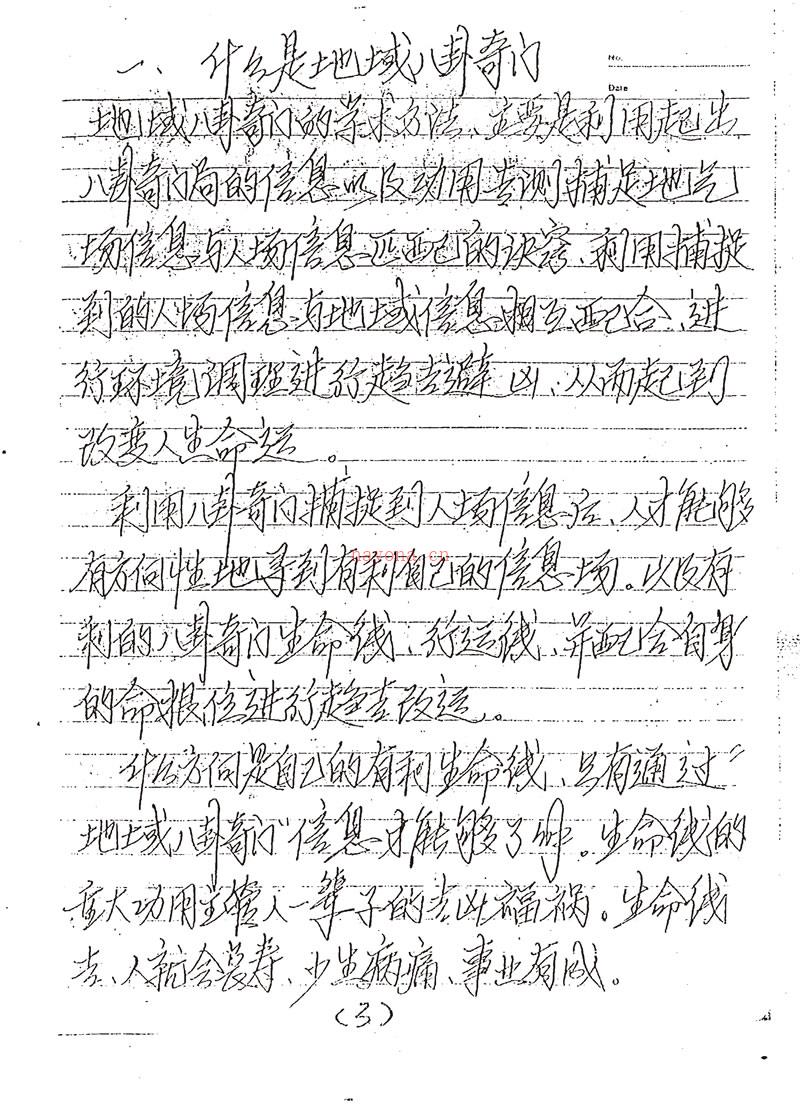 一、什么是地域八卦奇门
No.
Date
地域八卦奇门的学术方法、主要是利用起出
八卦奇门局的信息以及动用 测捕捉地气
场信息与人场信息匹配的诀窍、利用捕捉
到的人场信息与地域信息相互配合、进
行环境调理进行趋吉避凶、从而起到
改变人生命运。
利用八卦奇门捕捉到人场信息后、人才能够
有方向性地寻到有利自己的信息场。以及有
利的八卦奇门生命线、行运线、并配合自身
的命根位进行趋吉改运。
nayona.cn
什么方向是自己的有利生命线、只有通过“
地域八卦奇门”信息才能够了解。生命线的
重大功用主管人一辈子的吉凶福祸。生命线
吉、人就会长寿、少生病痛、事业有成。
(3)